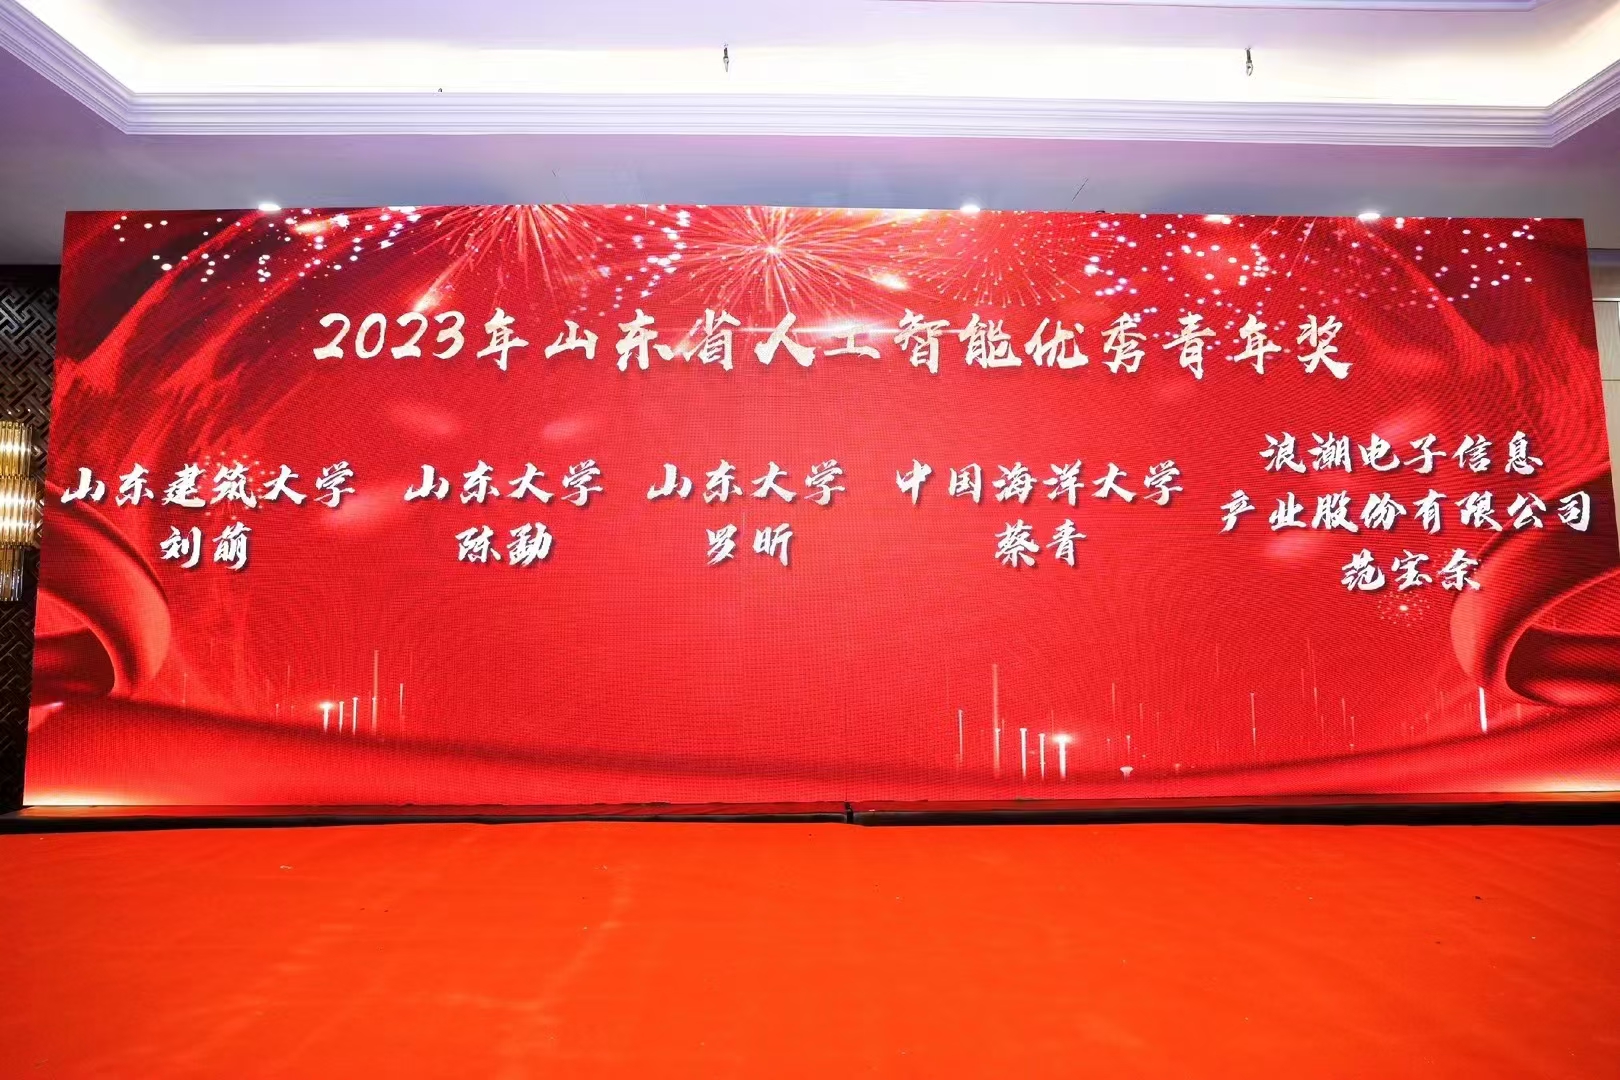 2023年山东省人工智能优秀青年奖
山东建筑大学
刘萌
山东大学
陈勐
山东大学
罗昕
中国海洋大学
蔡青
浪潮电子信息
产业股份有限公司
范宝余